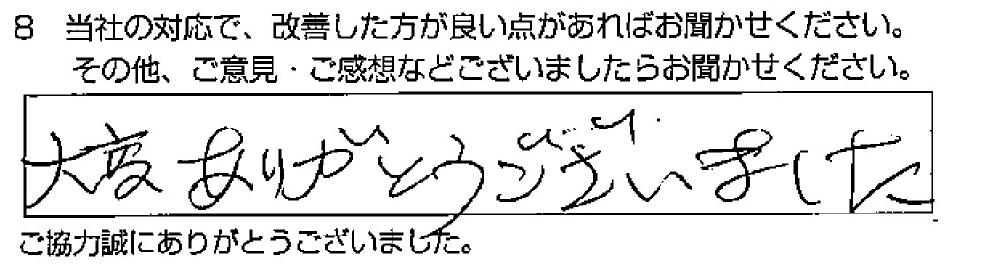 8 当社の対応で、改善した方が良い点があればお聞かせください。
その他、ご意見・ご感想などございましたらお聞かせください。
大変ありがとうございました
ご協力誠にありがとうございました。